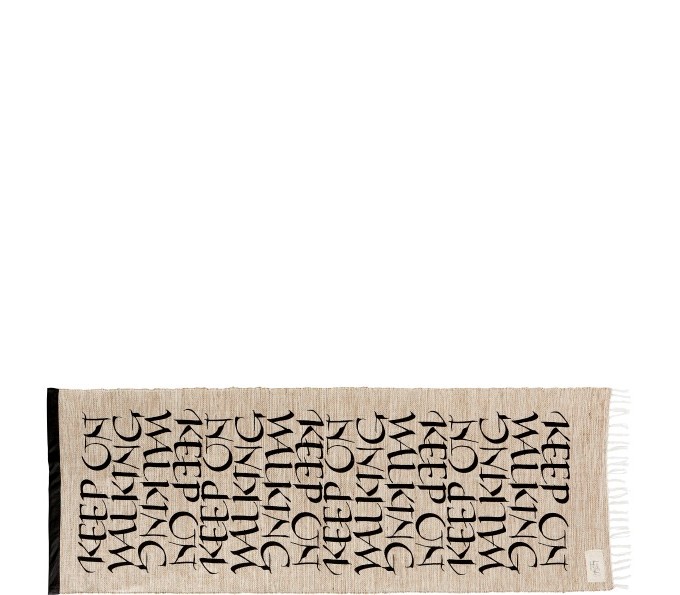 KEEP ON
WALKING
KEEP ON
WALKING
KEEP ON
WALKING
KEEP ON
WALKING
KEEP ON
WALKING
KEEP ON
WALKING
KEEP ON
WALKING
KEEP ON
WALKING